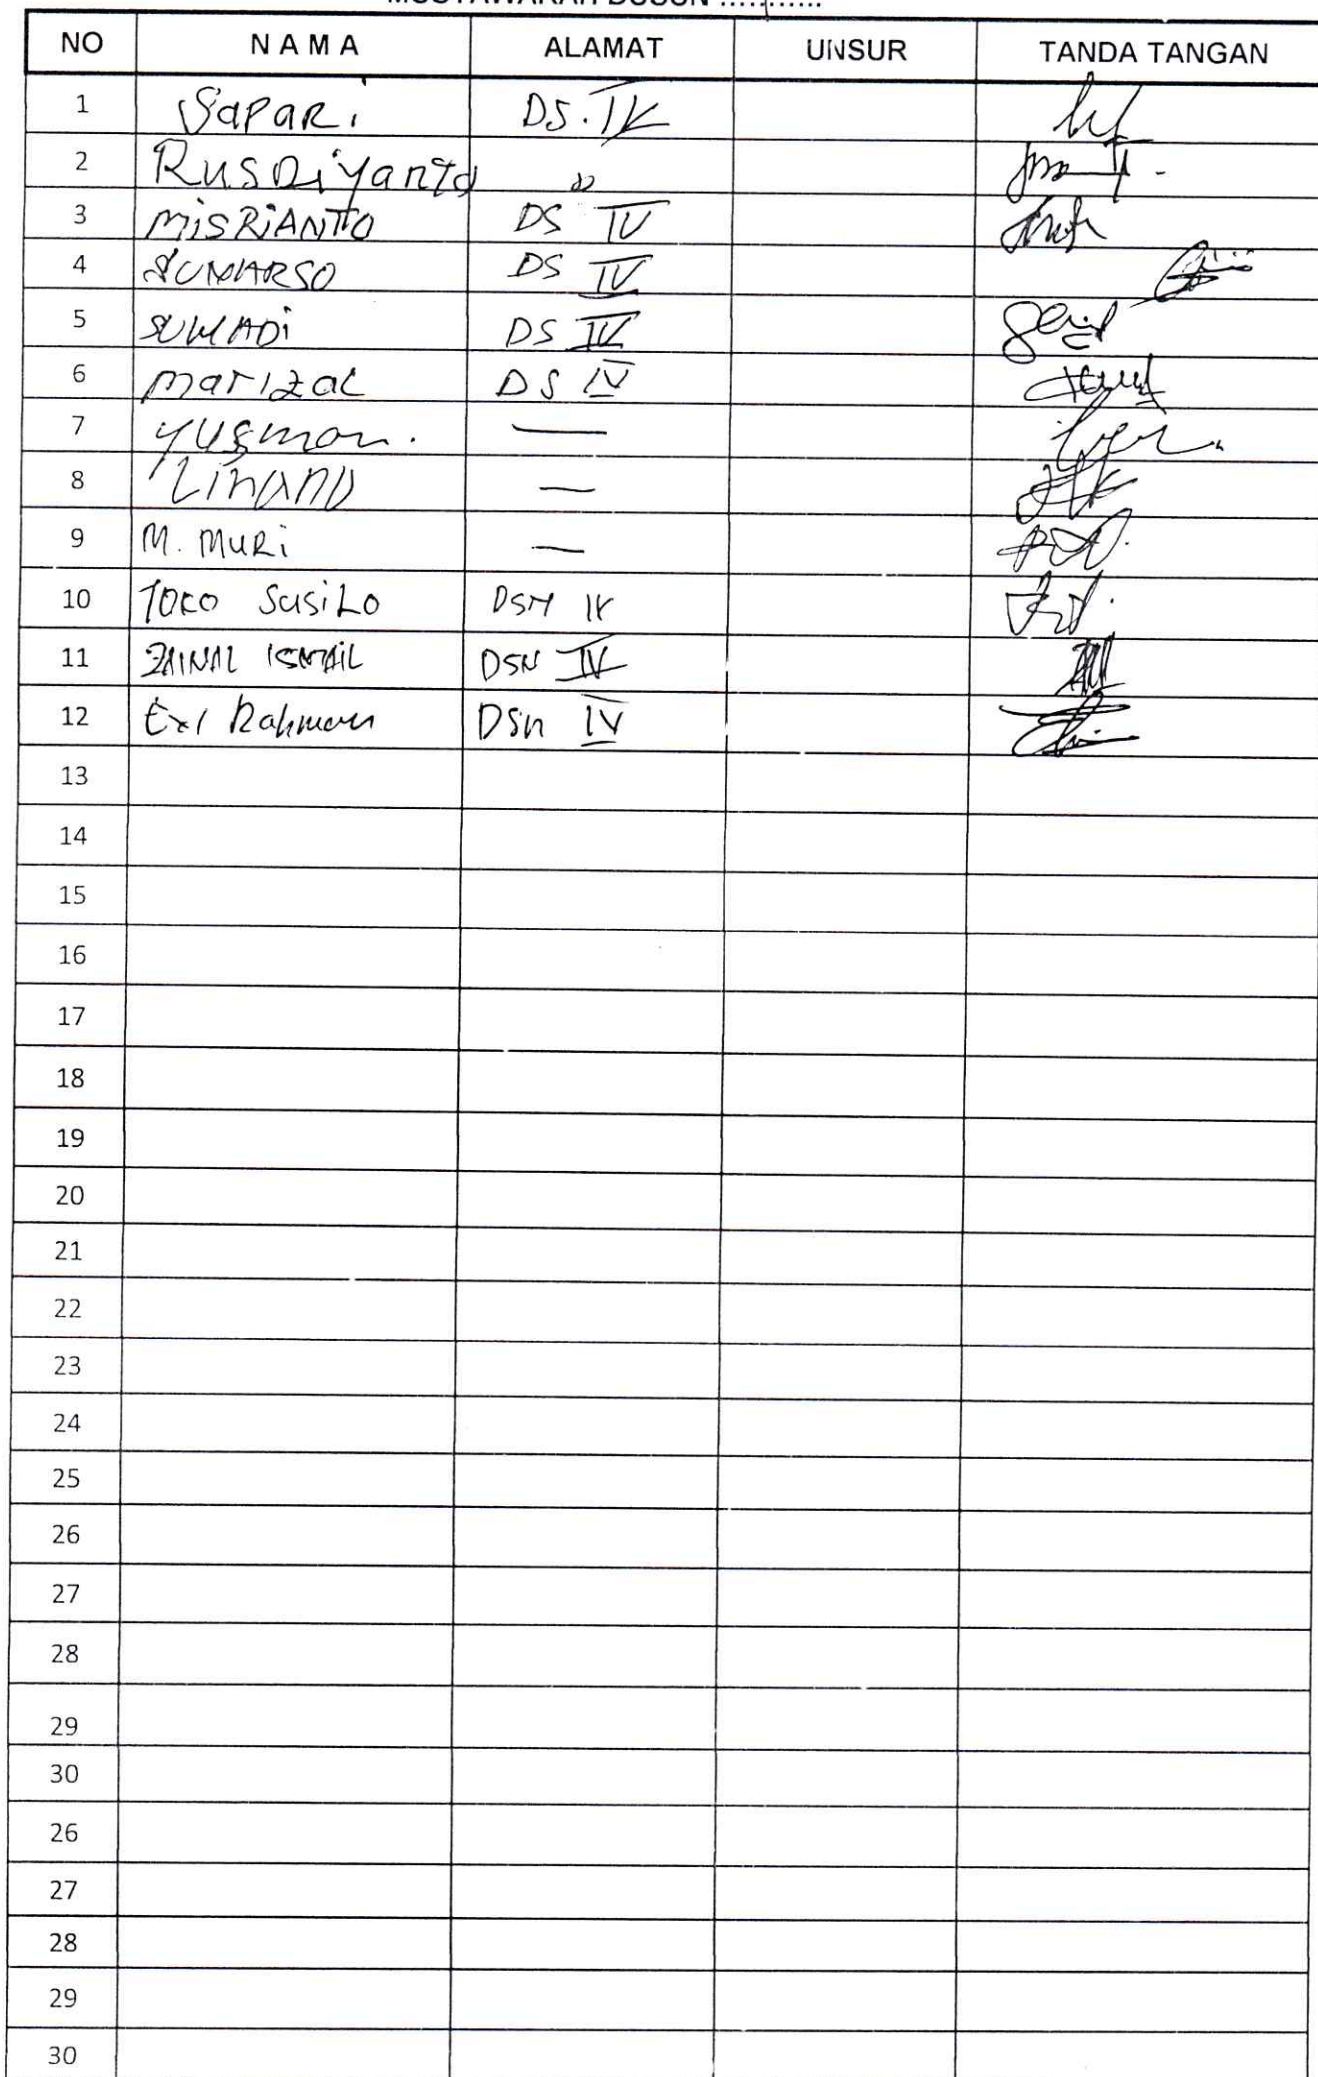 MUSYAWARAH DUSUN ............
NO NAMA ALAMAT UNSUR TANDA TANGAN
1 Sapari DS. IV
2 Rusdiyanto "
3 MISRIANTO DS IV
4 SUMARSO DS IV
5 SUMADI DS IV
6 Marizal DS IV
7 Yusman. —
8 —
9 M. MURI —
10 TOKO SUSILO DSN IV
11 ZAINAL ISMAIL DSN IV
12 Rahman DSN IV
13
14
15
16
17
18
19
20
21
22
23
24
25
26
27
28
29
30
26
27
28
29
30